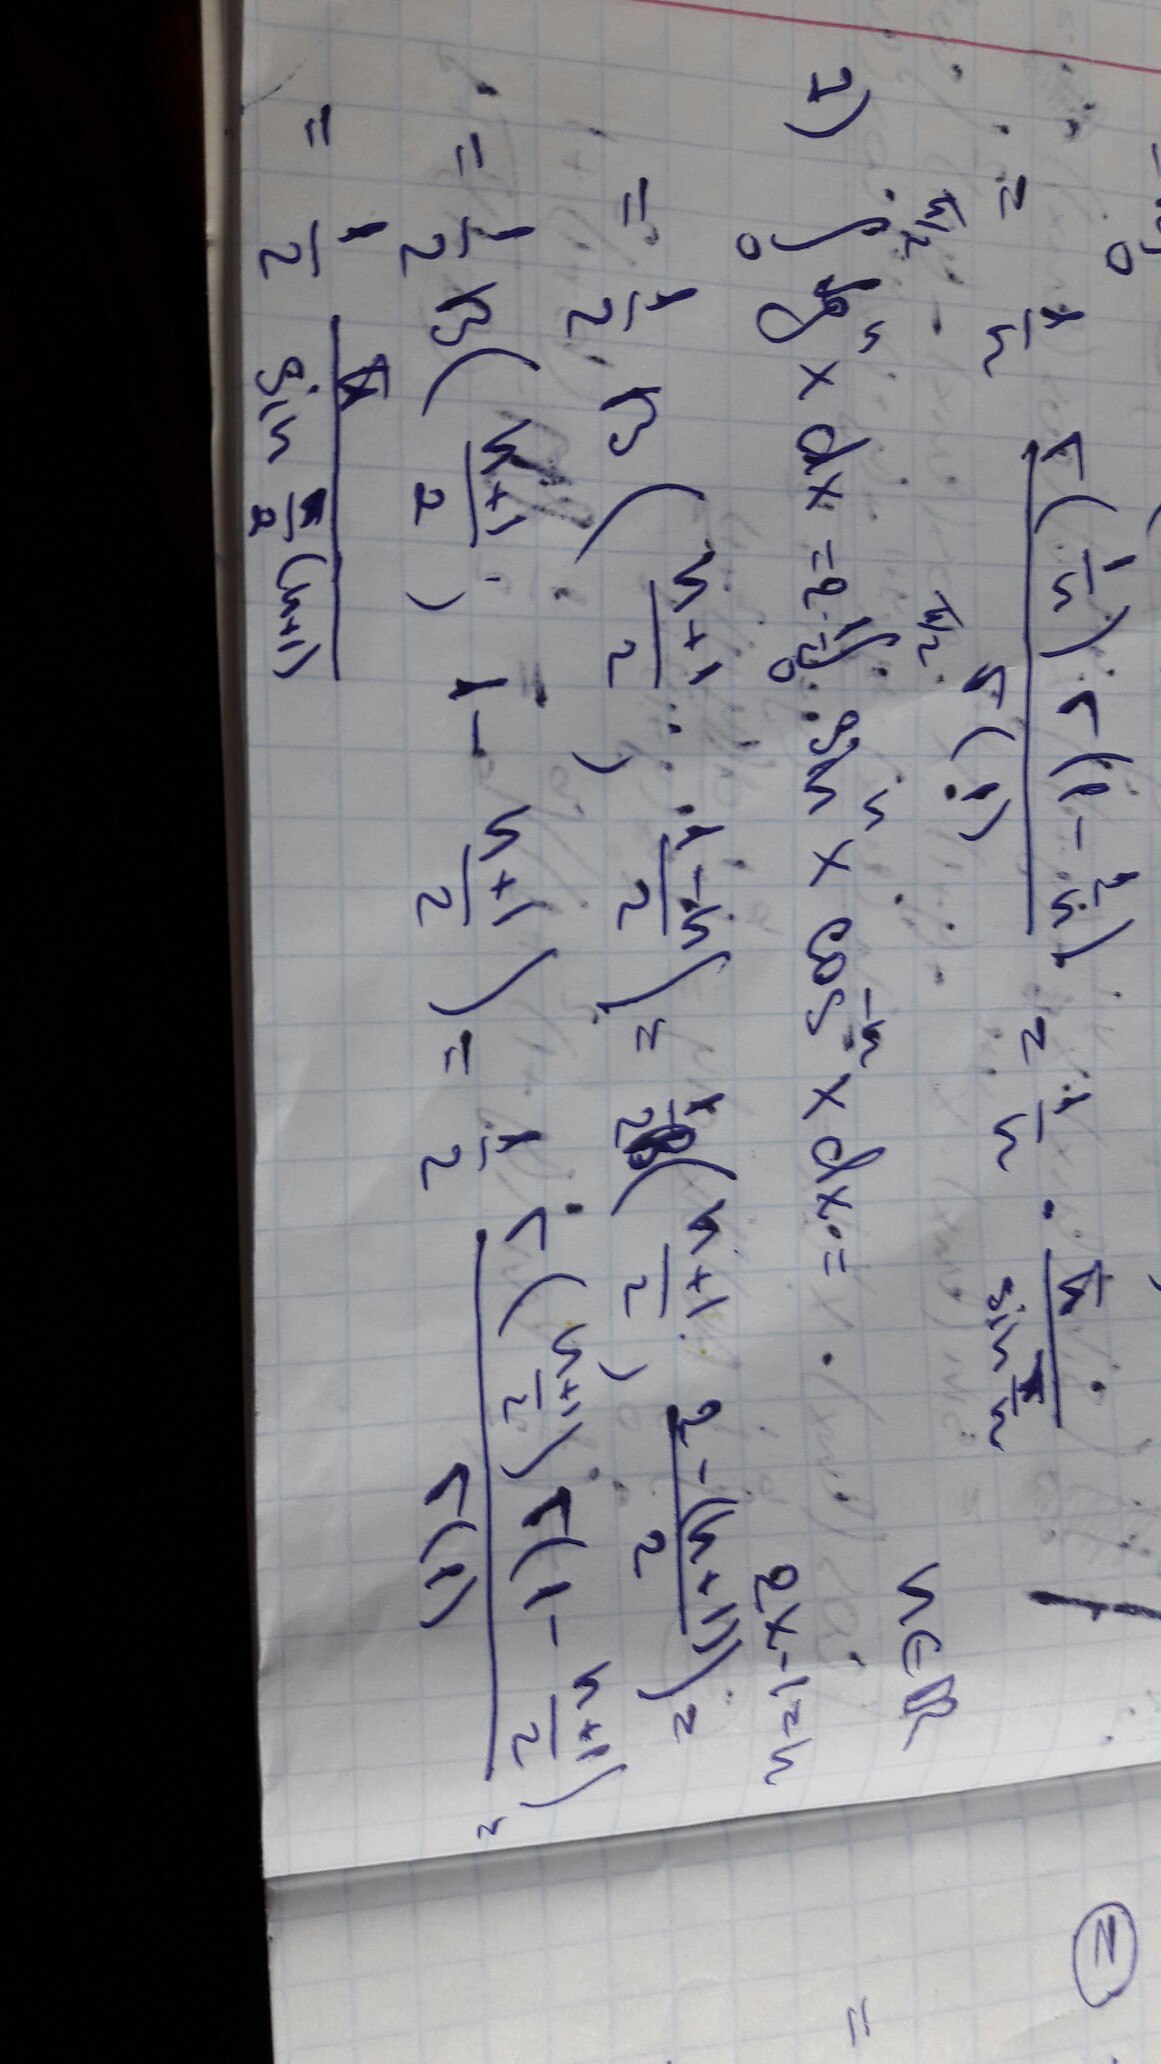 = 1/n · Γ(1/n) · Γ(1 - 1/n) / Γ(1) = 1/n · π / sin π/n
n ∈ ℝ
7) ∫₀^{π/2} tgⁿ x dx = 2 · 1/2 ∫₀^{π/2} sinⁿ x cos⁻ⁿ x dx =
2x - 1 = n
= 1/2 · B((n+1)/2, (1-n)/2) = 1/2 B((n+1)/2, (2-(n+1))/2) =
= 1/2 B((n+1)/2; 1 - (n+1)/2) = 1/2 Γ((n+1)/2) Γ(1 - (n+1)/2) / Γ(1) =
= 1/2 π / sin π/2 (n+1)